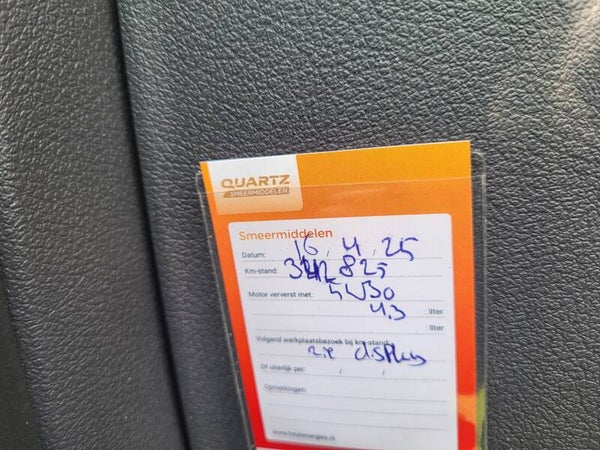 QUARTZ
SMEERMIDDELEN
Smeermiddelen
Datum: 16, 4, 25
Km-stand: 825
Motor ververst met: 5W30
4,3 : liter
: liter
Volgend werkplaatsbezoek bij km-stand:
zie display
Of uiterlijk per: / /
Opmerkingen:
www.totalenergies.nl